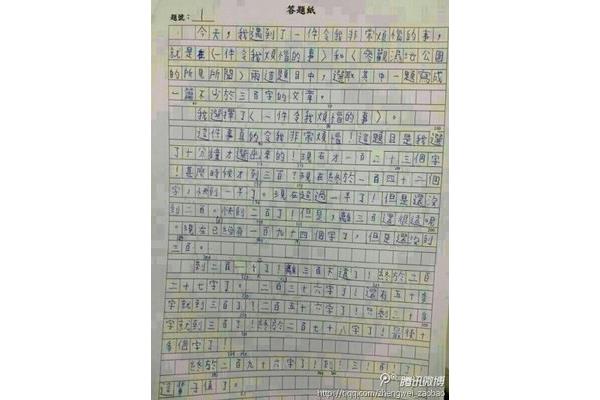 答題紙
題號：1
今天，我遇到了一件令我非常煩惱的事，
就是在〈一件令我煩惱的事〉和〈參觀濕地公園
的所見所聞〉兩道題目中，選取其中一題寫成
一篇不少於三百字的文章。
我選擇了〈一件令我煩惱的事〉。
這件事真的令我非常煩惱！這題目是我選
了十分鐘才選出來的！現在才一百二十三個字
！甚麼時候才到三百？現在終於一百四十二個
字，快到一半了。現在超過一半了！但是還沒
到二百。快到二百了！但是，離三百還很遠
。現在已經有一百九十四個字了，但是還沒到
三百。
到二百一十了！離三百不遠了！終於二百
二十七字了。二百三十六字了！還有五十多
字就到三百了！二百五十六字了！不到二十多
字就到三百了！終於二百七十八字了！最後十
多個字了！
終於二百九十六字了！到！三！百！了！
腾讯微博
http://t.qq.com/zhengwei-zaobao